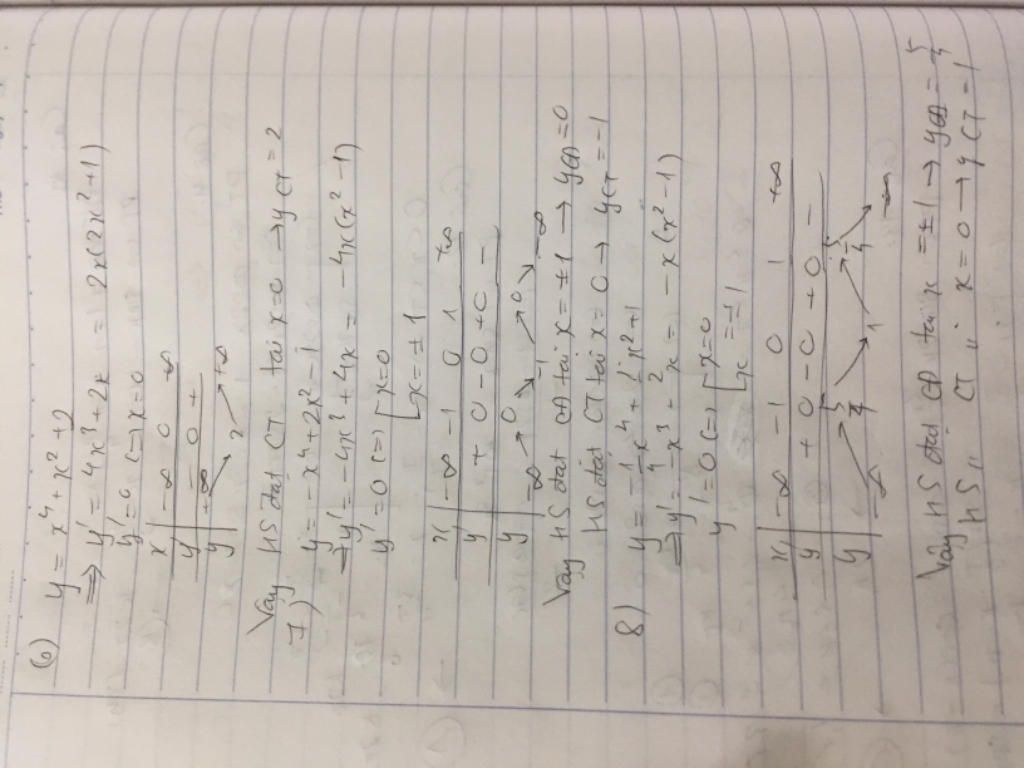 6) y = x⁴ + x² + 2
⇒ y' = 4x³ + 2x = 2x(2x² + 1)
y' = 0 (=) x = 0
x | -∞ 0 +∞
y' | - 0 +
y | +∞ ↘ 2 ↗ +∞
Vậy HS đạt CT tại x = 0 → yCT = 2
7) y = -x⁴ + 2x² - 1
⇒ y' = -4x³ + 4x = -4x(x² - 1)
y' = 0 (=) [x = 0
[x = ±1
x | -∞ -1 0 1 +∞
y' | + 0 - 0 + 0 -
y | -∞ ↗ 0 ↘ -1 ↗ 0 ↘ -∞
Vậy HS đạt CĐ tại x = ±1 → yCĐ = 0
HS đạt CT tại x = 0 → yCT = -1
8) y = -1/4 x⁴ + 1/2 x² + 1
⇒ y' = -x³ + x = -x(x² - 1)
y' = 0 (=) [x = 0
[x = ±1
x | -∞ -1 0 1 +∞
y' | + 0 - 0 + 0 -
y | -∞ ↗ 5/4 ↘ 1 ↗ 5/4 ↘ -∞
Vậy HS đạt CĐ tại x = ±1 → yCĐ = 5/4
HS " CT " x = 0 → yCT = 1